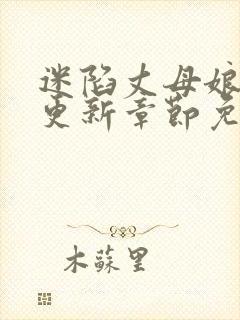 迷陷丈母娘
更新章节免
木蘇里